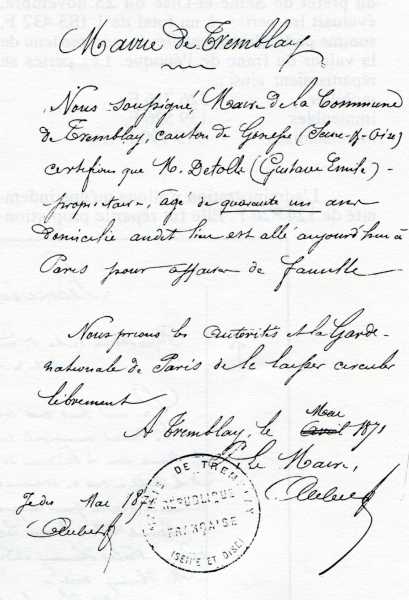 Mairie de Tremblay
Nous soussigné, Maire de la Commune
de Tremblay, canton de Gonesse (Seine-&-Oise)
certifions que M. Detolle (Gustave Emile)-
propriétaire, âgé de quarante un ans
domicilié audit lieu est allé aujourd'hui à
Paris pour affaires de famille
Nous prions les autorités et la Garde-
nationale de Paris de le laisser circuler
librement
A Tremblay, le avril Mai 1871
Le Maire,
MAIRIE DE TREMBLAY
RÉPUBLIQUE
FRANÇAISE
(SEINE ET OISE)
Mai 1871